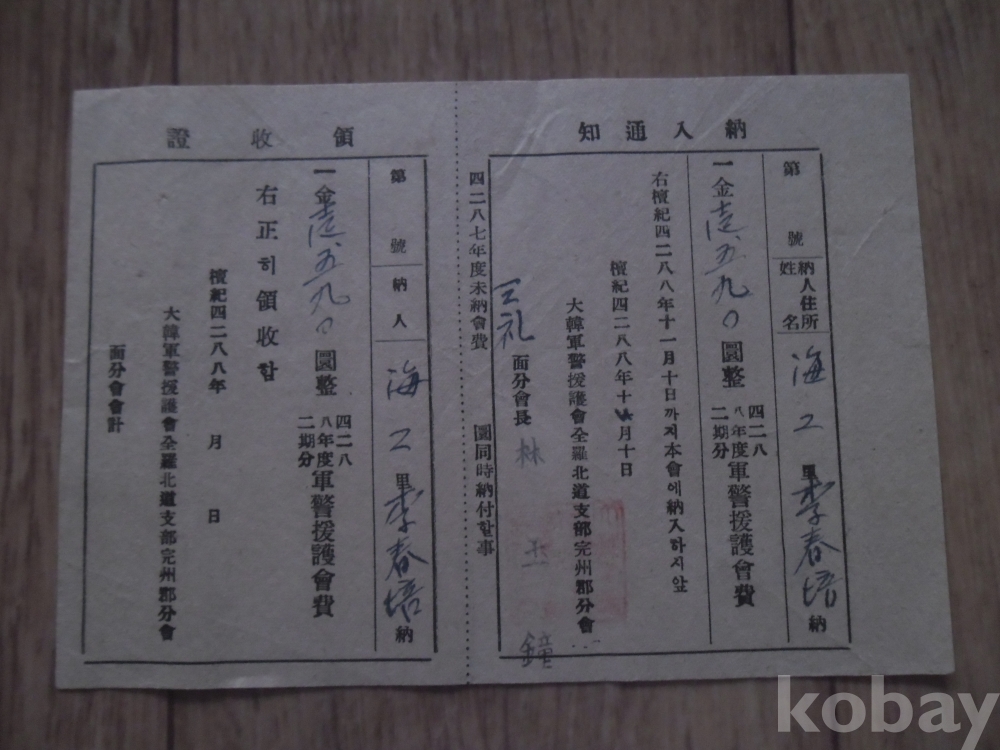 納入通知
第 號
納人住所
姓名
海 2 里 李春培 納
一金壹五九0圜整
四二八
八年度
二期分
軍警援護會費
右檀紀四二八八年十一月十日까지本會에納入하시앞
檀紀四二八八年十 月十日
大韓軍警援護會全羅北道支部完州郡分會
三礼面分會長 林 鐘
四二八七年度未納會費 圜同時納付할事
領收證
第 號
納人
海 2 里 李春培 納
一金壹五九0圜整
四二八
八年度
二期分
軍警援護會費
右正히領收함
檀紀四二八八年 月 日
大韓軍警援護會全羅北道支部完州郡分會
面分會會計
kobay